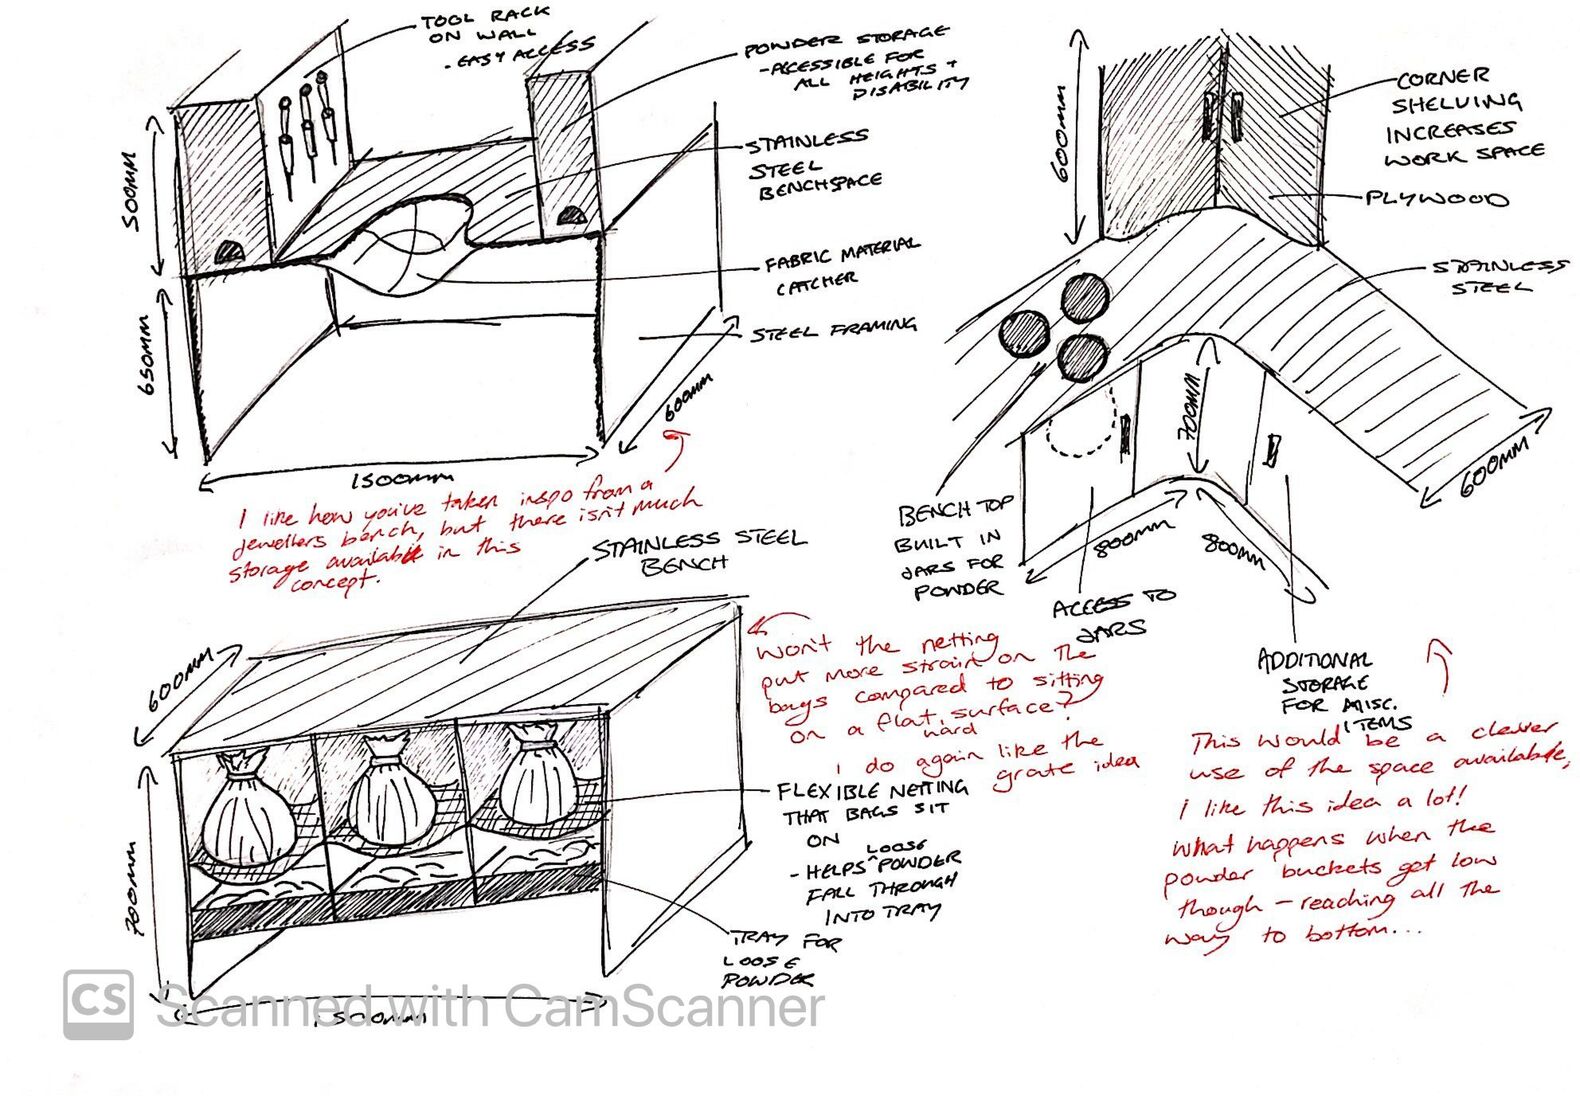 TOOL RACK
ON WALL
. EASY ACCESS
POWDER STORAGE
-ACCESSIBLE FOR
ALL HEIGHTS +
DISABILITY
STAINLESS
STEEL
BENCHSPACE
FABRIC MATERIAL
CATCHER
STEEL FRAMING
500MM
650MM
1500MM
600MM
I like how you've taken inspo from a
jewellers bench, but there isn't much
storage available in this
concept.
600MM
CORNER
SHELVING
INCREASES
WORK SPACE
PLYWOOD
STAINLESS
STEEL
700MM
600MM
800MM
800MM
BENCH TOP
BUILT IN
JARS FOR
POWDER
ACCESS TO
JARS
ADDITIONAL
STORAGE
FOR MISC.
ITEMS
This would be a clever
use of the space available,
I like this idea a lot!
What happens when the
powder buckets get low
though - reaching all the
way to bottom...
STAINLESS STEEL
BENCH
600MM
700MM
1500MM
Won't the netting
put more strain on the
bags compared to sitting
on a flat, surface?
hard
I do again like the
grate idea
FLEXIBLE NETTING
THAT BAGS SIT
ON
LOOSE
- HELPS ^ POWDER
FALL THROUGH
INTO TRAY
TRAY FOR
LOOSE
POWDER
CS Scanned with CamScanner